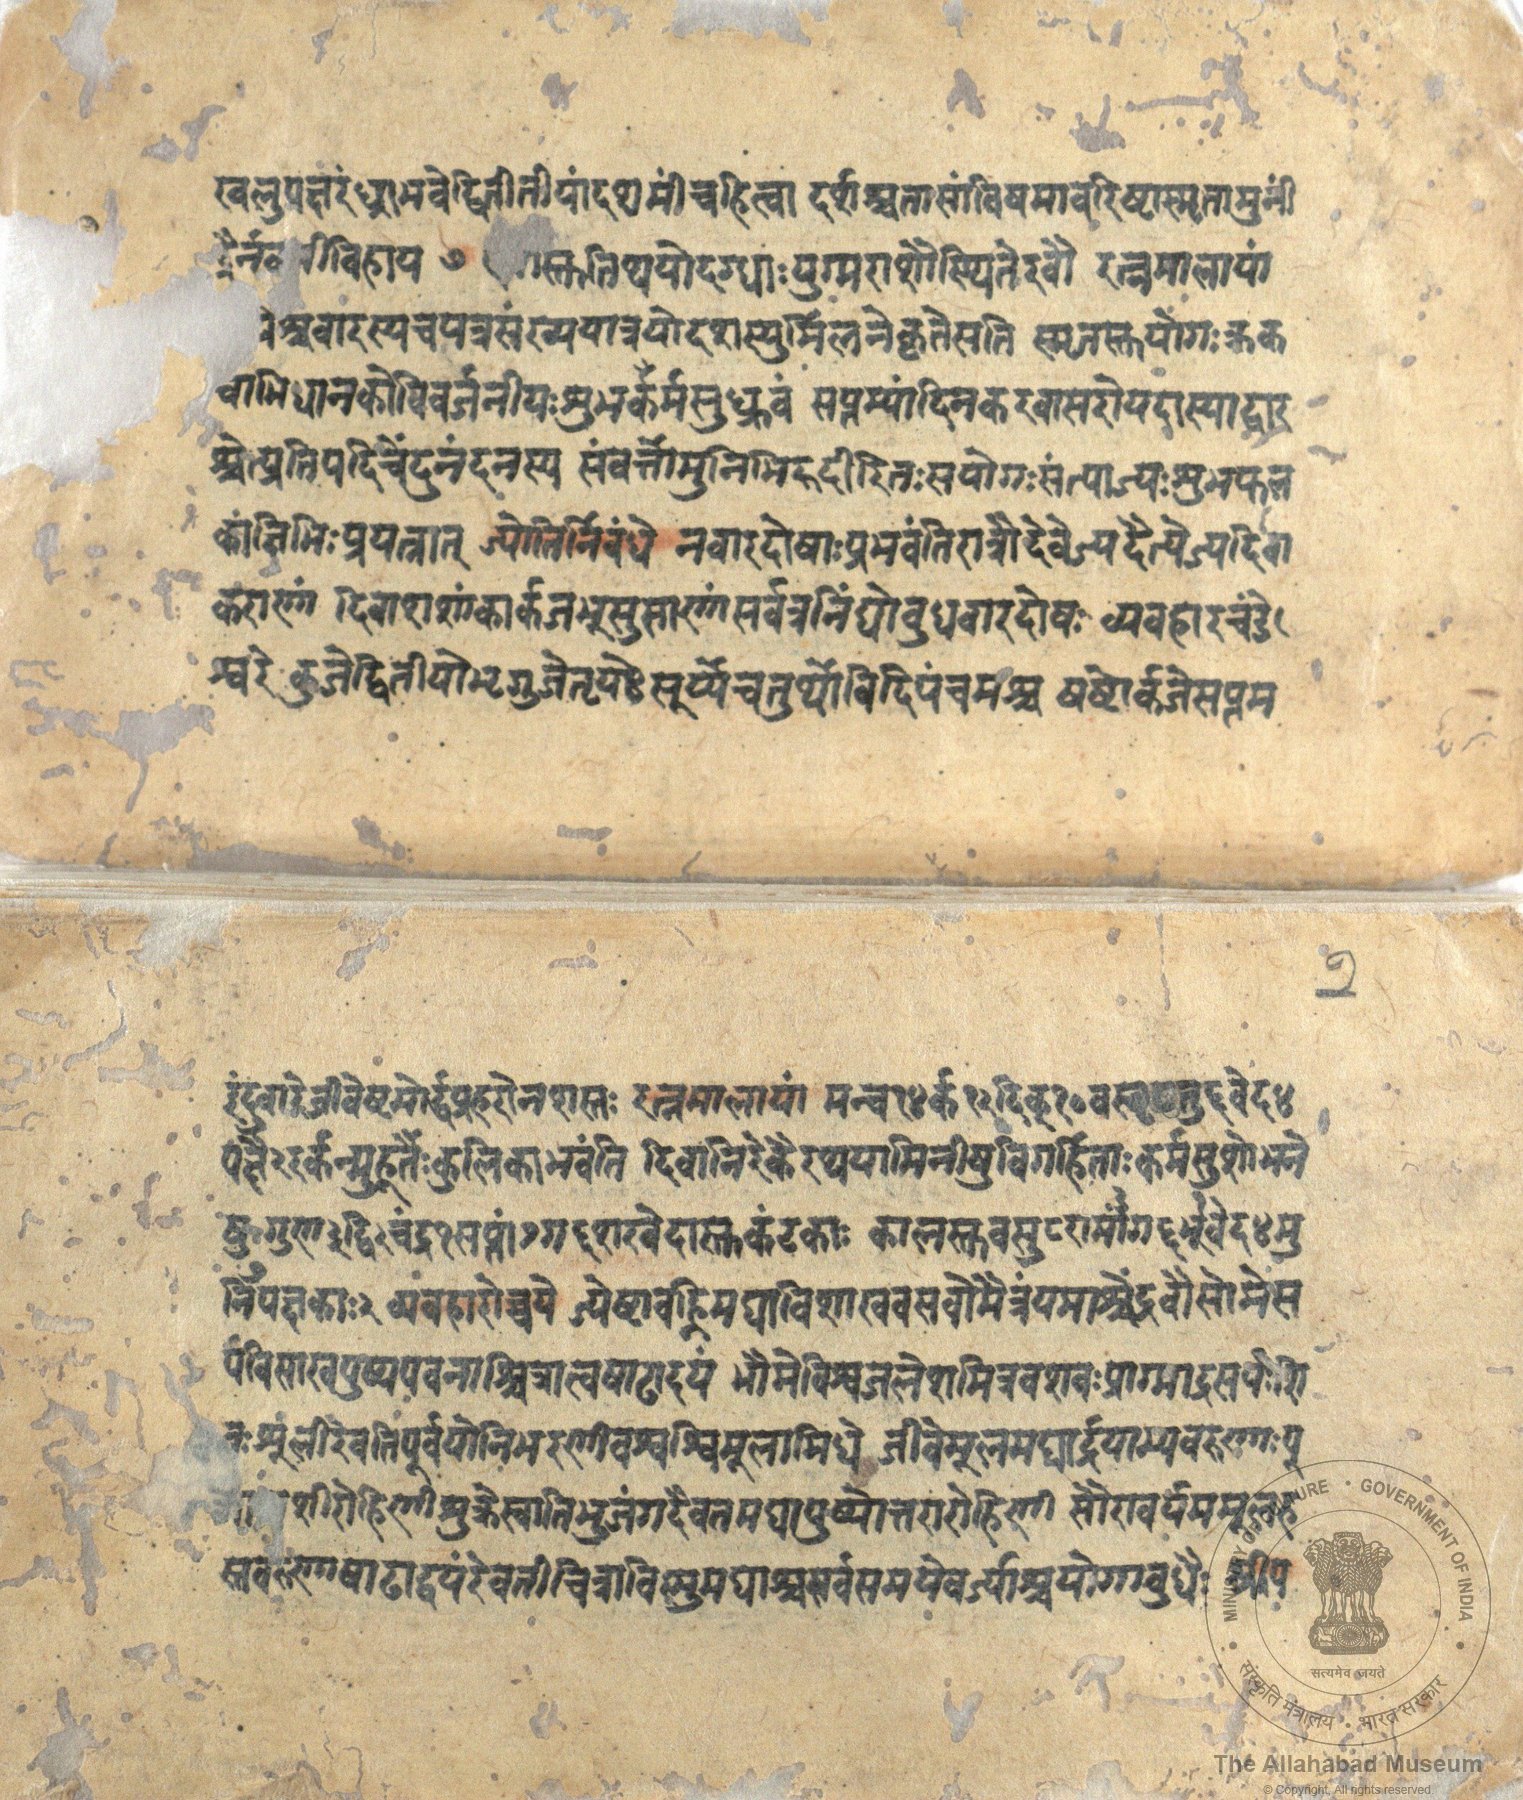 खलुपक्षरंध्राभवेद्द्वितीतीयांदशमींचहित्वा दर्शश्चतासांविषमावरिष्टास्मृतामुनीं
विहाय ७ स्तातिथयोदग्धाःयुग्मराशौस्थितेरवौ रत्नमालायां
श्चवारस्यचयत्रसंख्ययात्रयोदशस्युर्मिलनेकृतेसति स्मृतस्तयोगःक्रक
चाभिधानकोविवर्जनीयःशुभकर्मसुध्रुवं सप्तम्यांदिनकरवासरोयदास्याद्वार
श्चेत्प्रतिपदिचेंदुनंदनस्य संवर्त्तोमुनिभिरुदीरितःसयोगःसंत्याज्यःशुभफल
कांक्षिभिःप्रयत्नात् ज्योतिर्निबंधे नवारदोषाःप्रभवंतिरात्रौदेवेज्यदैत्येज्यदिवा
कराणां दिवाशशांकार्कजभूसुतानांसर्वत्रनिंद्योवुधवारदोषः व्यवहारचंडे
श्वरे कुजेद्वितीयोभृगुजेतृयः सूर्य्येचतुर्थोविदिपंचमश्च षष्टोर्कजेसप्तम
७
इंदुवारेजीवेष्टमोर्द्धप्रहरोनशस्तः रत्नमालायां मन्व१४र्क१२दिक्१०वस्वृतुवेद४
पक्षै२रर्कान्मुहूर्तैःकुलिकाभवंति दिवानिरेकैरथयामिनीषुविगर्हिताःकर्मसुशोभने
षुगुण३द्वि२चंद्र१सप्तां७ग६शरवेदास्तकंटकाः कालस्तवसु८रामांग६भूवेद४मु
निपक्षकाः२ व्यवहारोच्चये ज्येष्टावह्निमघाविशाखवसवोमैत्रंयमाश्चेंद्रवौसोमेस
र्पविसाखपुष्यपवनाश्चित्रात्वषाढाद्वयं भौमेविश्वजलेशमित्रवशवःप्राग्भाद्रसर्पाशि
वःशूलीरेवतिपूर्वयोनिभरणीवश्वश्विमूलाभिधे जीवेमूलमघार्द्रयाम्यवरुणःपू
शीरोहिणीशुक्रेस्वातिभुजंगदैवतमघापुष्योत्तरारोहिणी सौरावर्यममूलह
स्तवरुणषाढाद्वयंरेवतीचित्राविस्नुमघाश्चसर्वसमयेवर्ज्याश्चयोगावुधैः श्रीप
MINISTRY OF CULTURE · GOVERNMENT OF INDIA
सत्यमेव जयते
संस्कृति मंत्रालय · भारत सरकार
The Allahabad Museum
© Copyright, All rights reserved.